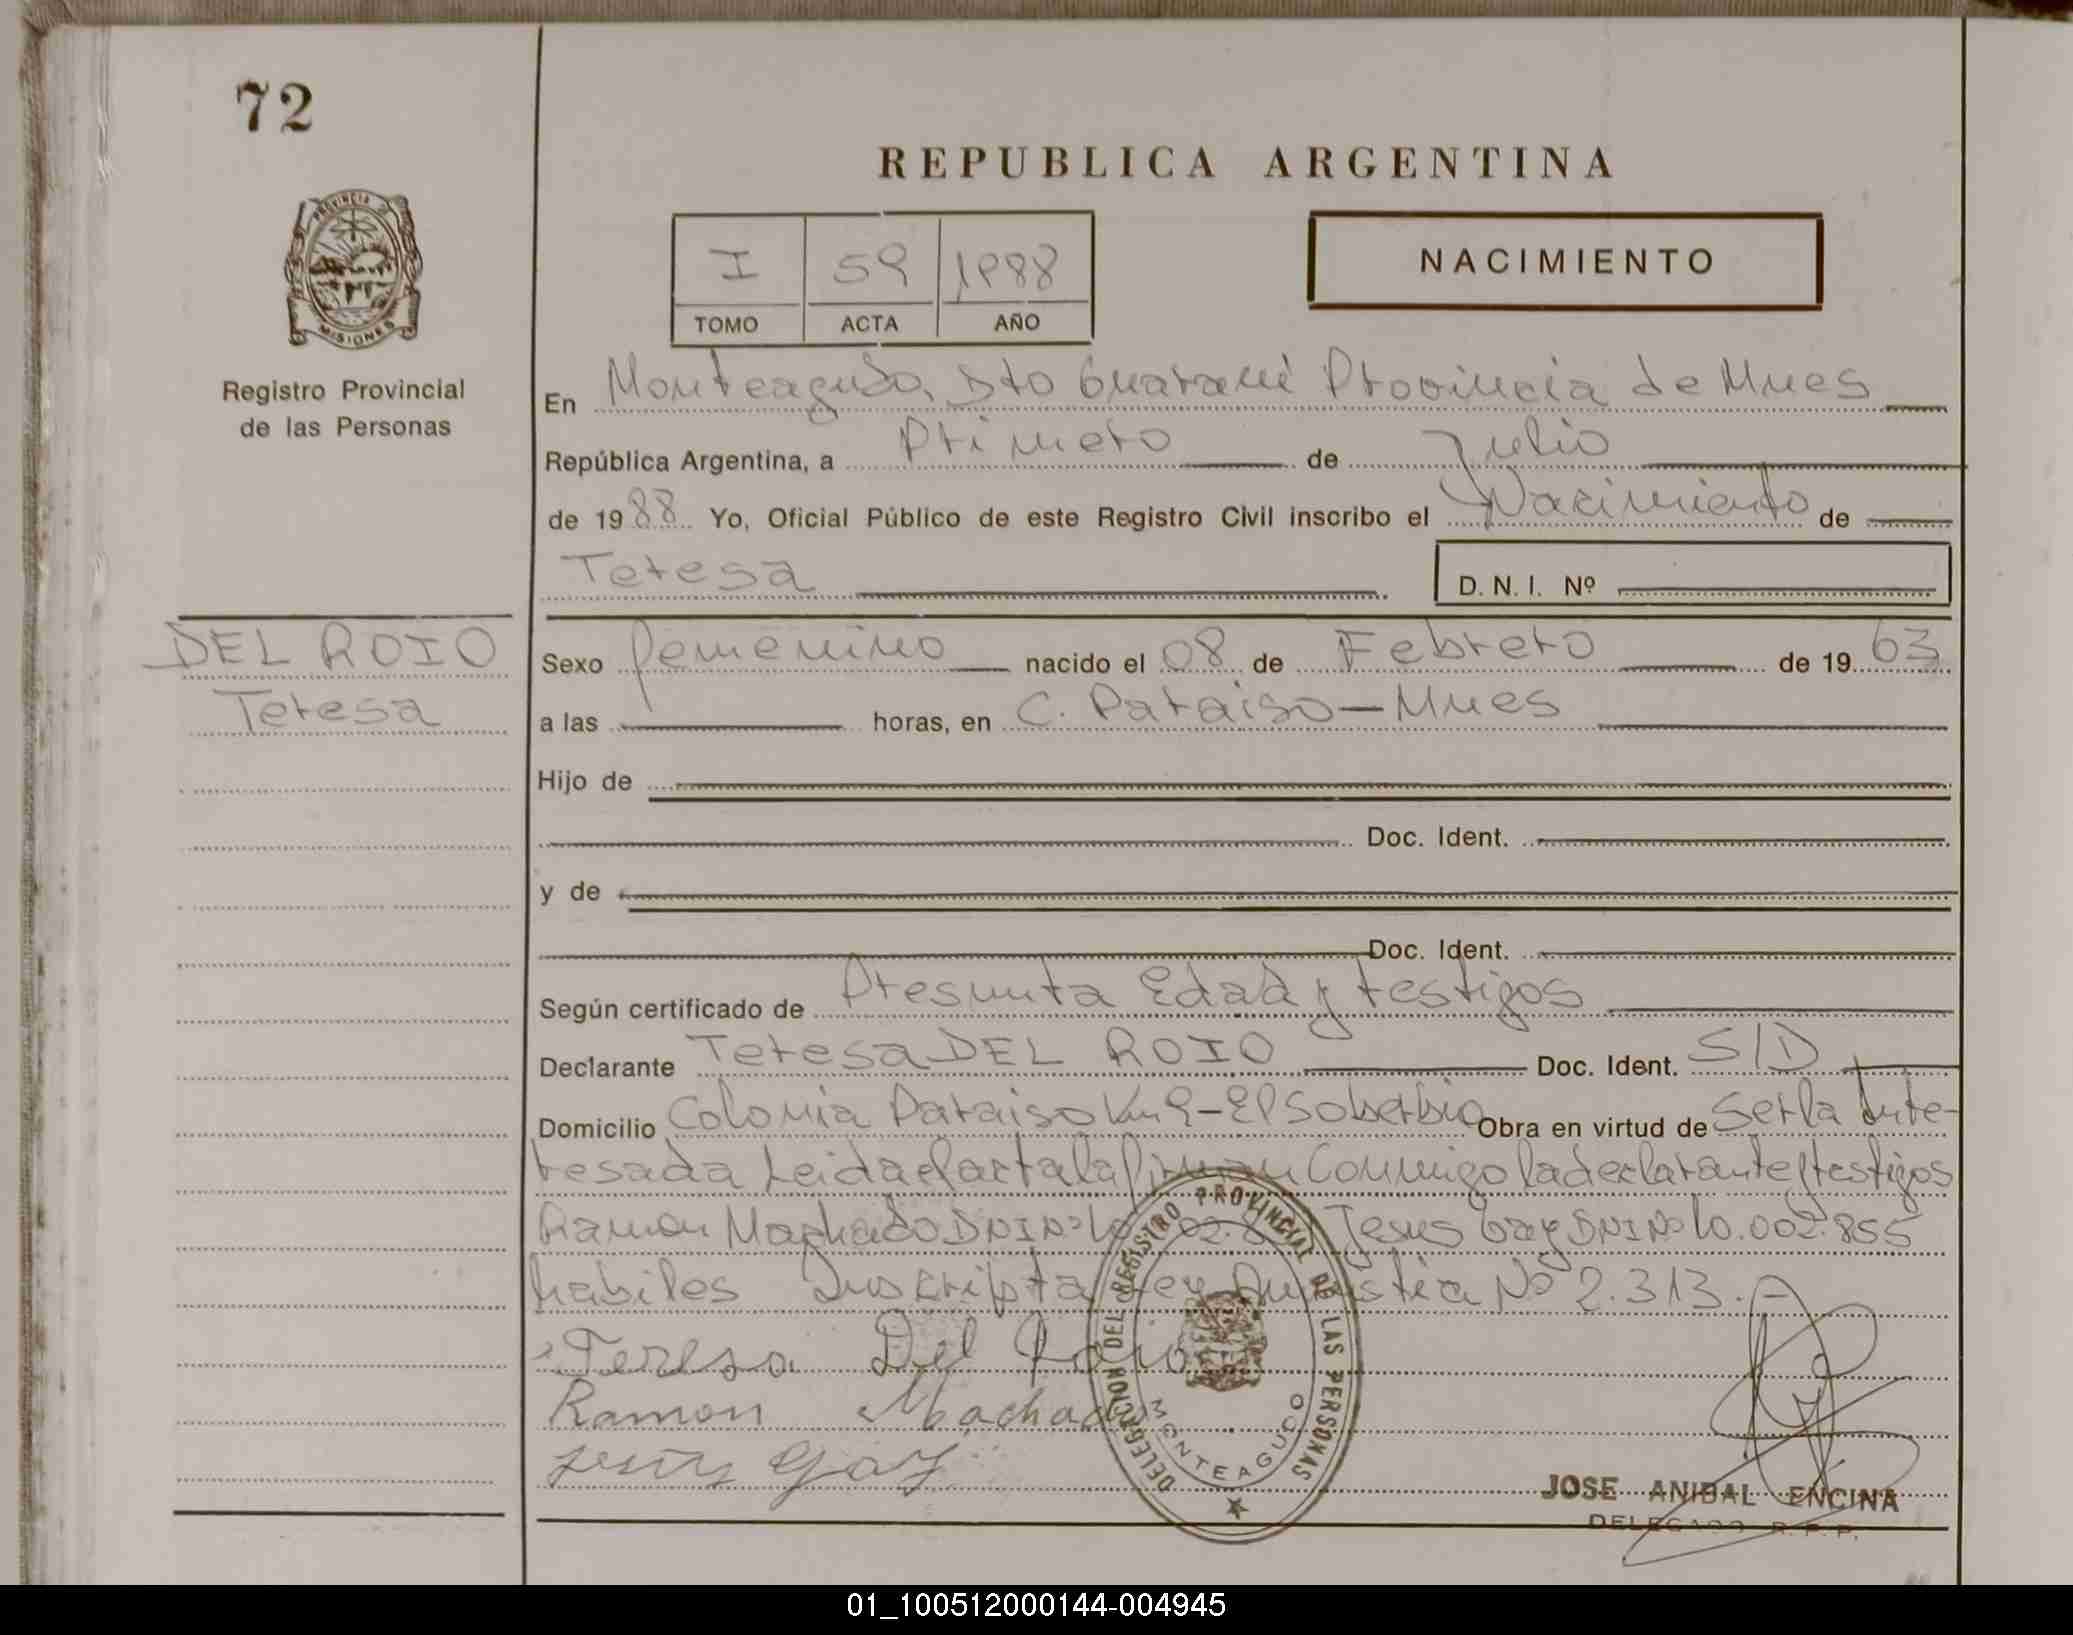 72
REPUBLICA ARGENTINA
PROVINCIA D
MISIONES
Registro Provincial
de las Personas
I 59 1988
TOMO ACTA AÑO
NACIMIENTO
En Monteagudo, Dto Guaraní Provincia de Mnes
República Argentina, a Primero de Julio
de 1988 Yo, Oficial Público de este Registro Civil inscribo el Nacimiento de
Teresa D. N. I. Nº
DEL ROIO
Teresa
Sexo femenino nacido el 08 de Febrero de 1963
a las horas, en C. Paraiso - Mnes
Hijo de
Doc. Ident.
y de
Doc. Ident.
Según certificado de Presunta Edad y testigos
Declarante Teresa DEL ROIO Doc. Ident. S/D
Domicilio Colonia Paraiso Km 9 - El Soberbio Obra en virtud de Ser la Inte-
resada Leida el acta la firman Conmigo la declarante y testigos
Ramon Machado DNI Nº Jesus Gay DNI Nº 10.002.855
habiles Inscripta Ley Amnistia Nº 2.313.
Teresa Del Roio
Ramon Machado
Jesus Gay
DELEGACION DEL REGISTRO PROVINCIAL DE LAS PERSONAS
MONTEAGUDO
JOSE ANIBAL ENCINA
DELEGADO R. P. P.
01_100512000144-004945